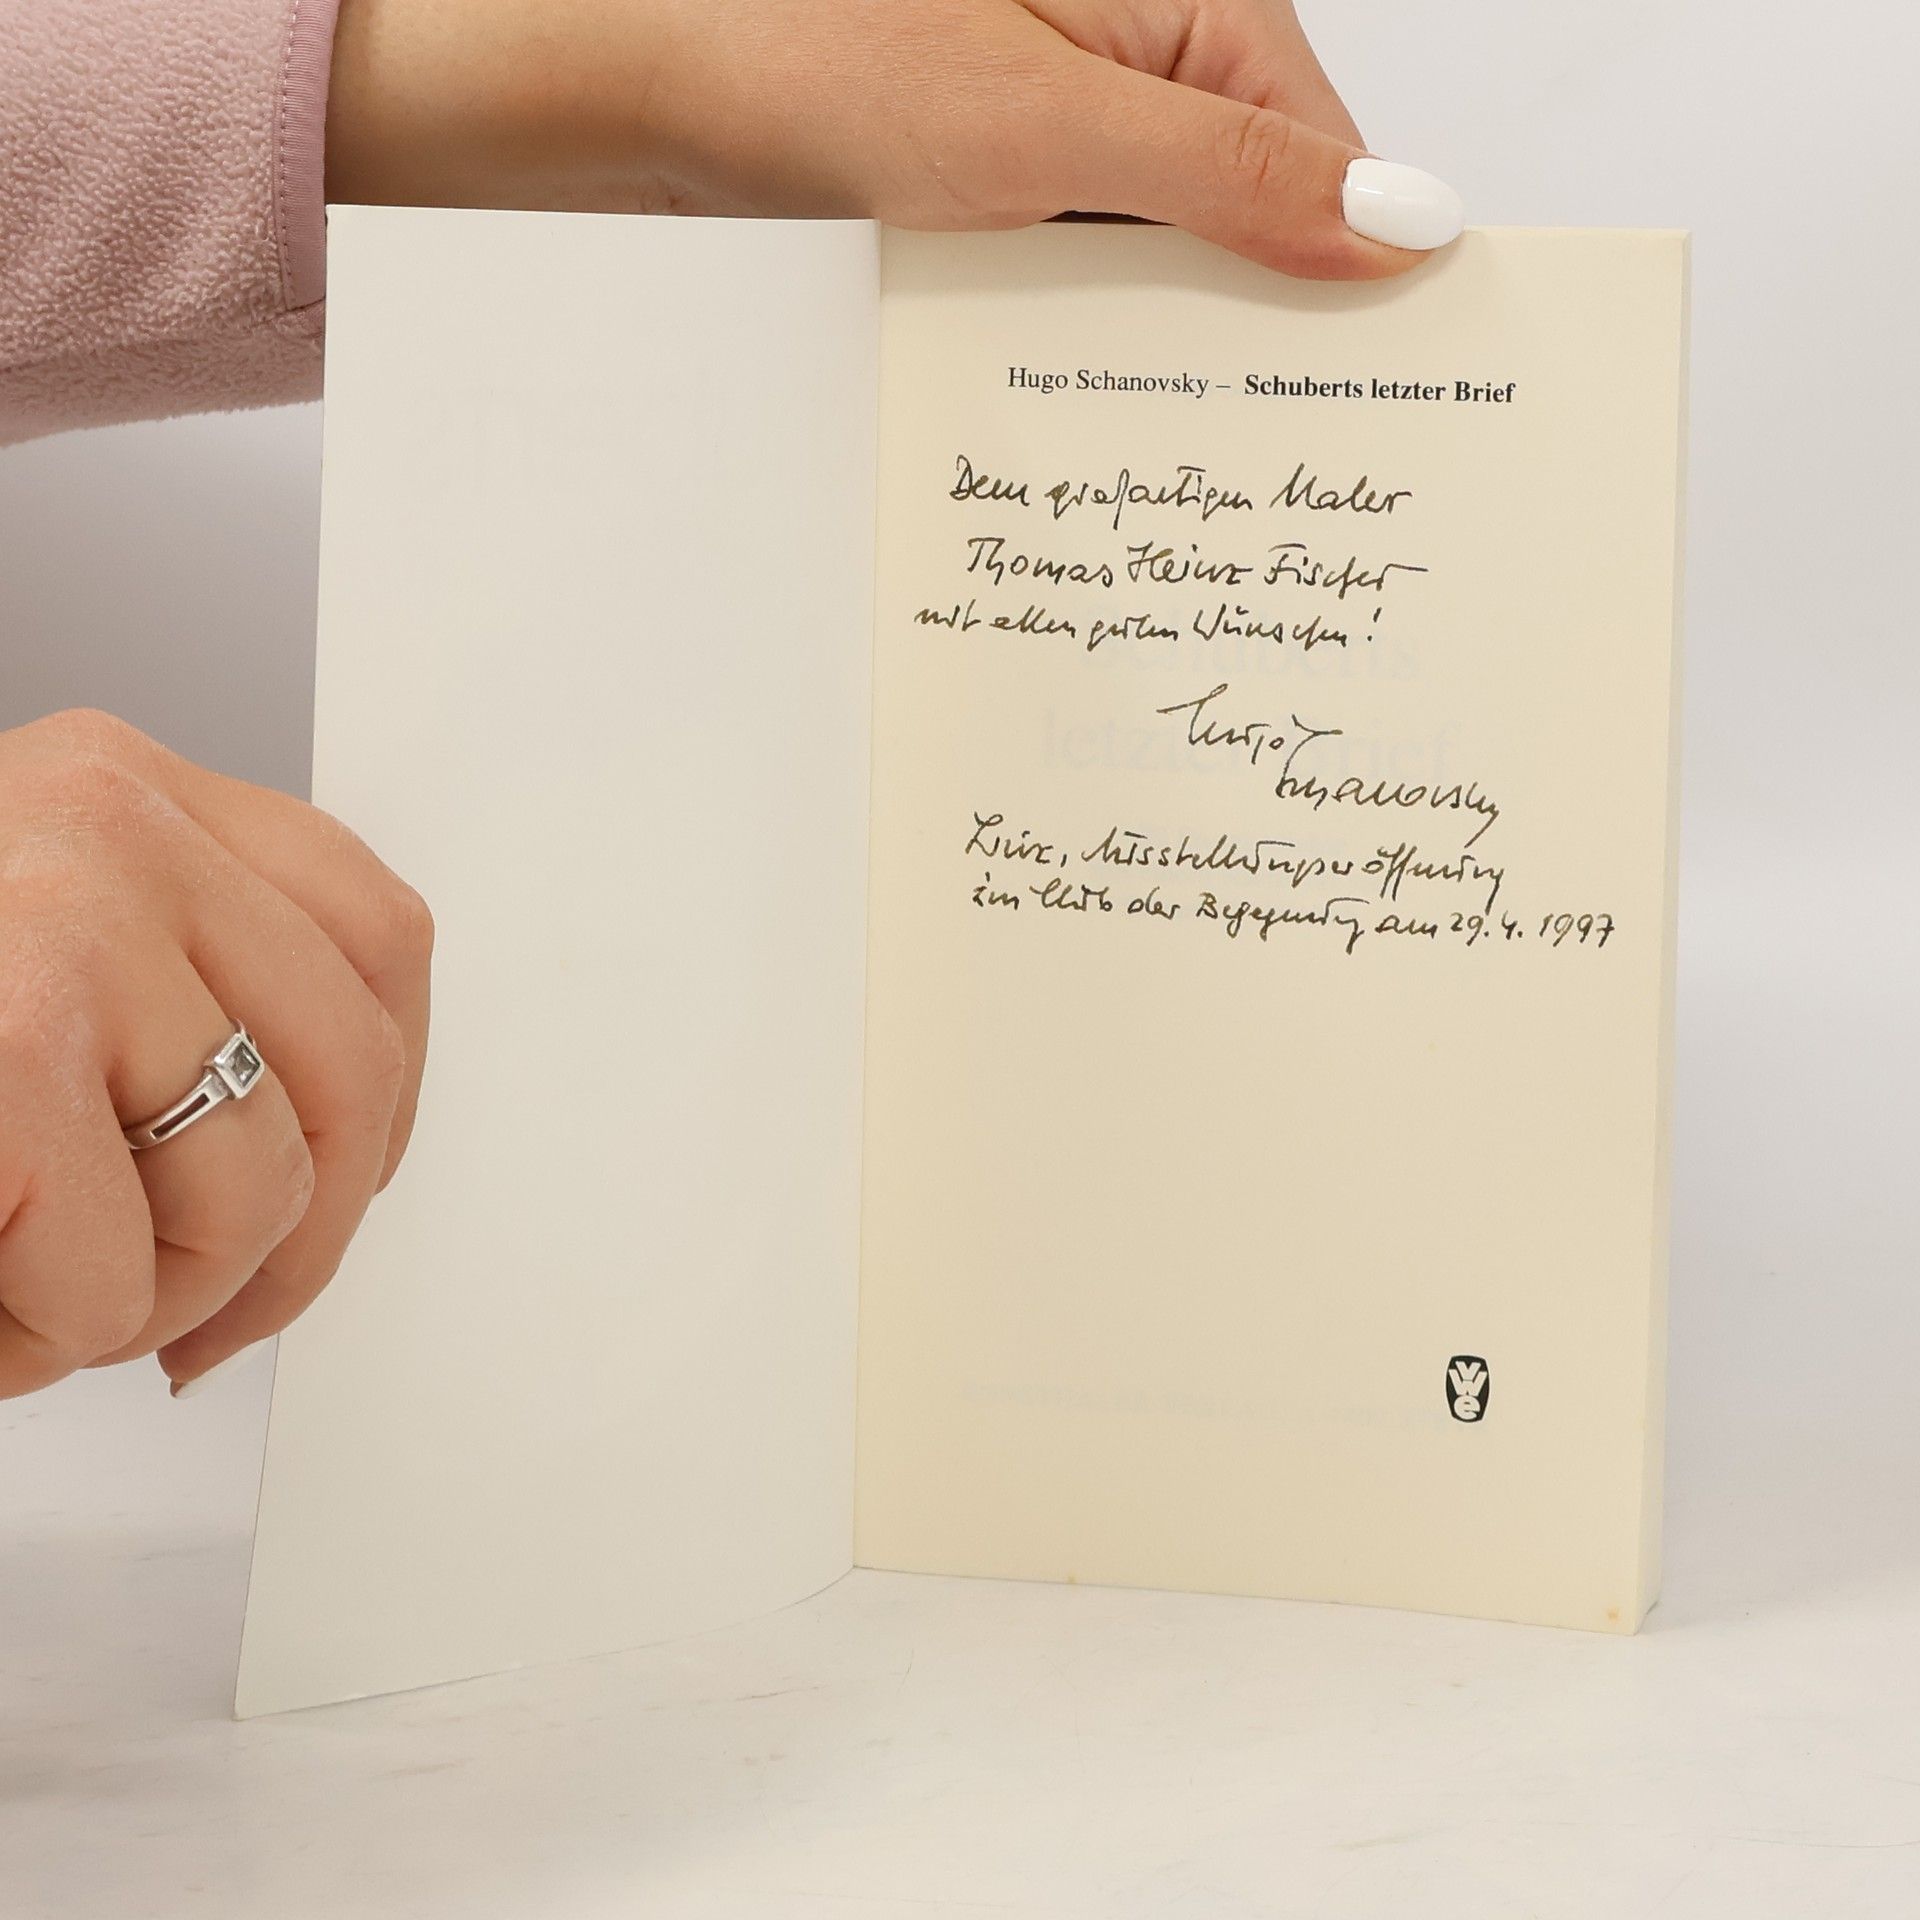 Hugo Schanovsky – Schuberts letzter Brief
Dem großartigen Maler
Thomas Heinz Fischer
mit allen guten Wünschen!
Hugo
Schanovsky
Linz, Ausstellungseröffnung
im Club der Begegnung am 29.4.1997
Schuberts
letzter Brief
vwe